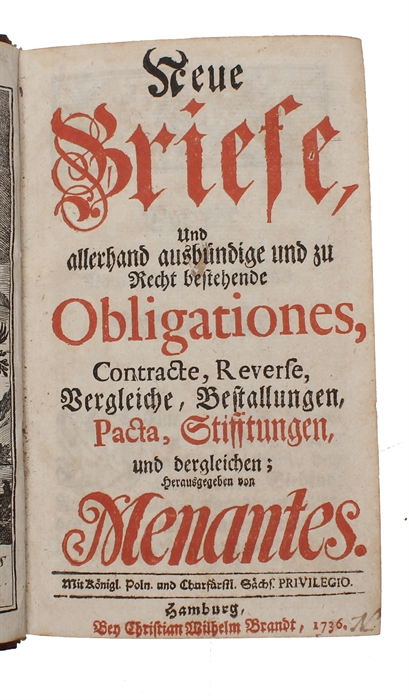 Neue
Briefe,
Und
allerhand ausbündige und zu
Recht bestehende
Obligationes,
Contracte, Reverse,
Vergleiche, Bestallungen,
Pacta, Stifftungen,
und dergleichen;
Herausgegeben von
Menantes.
Mit Königl. Poln. und Churfürstl. Sächs. PRIVILEGIO.
Hamburg,
Bey Christian Wilhelm Brandt, 1736.